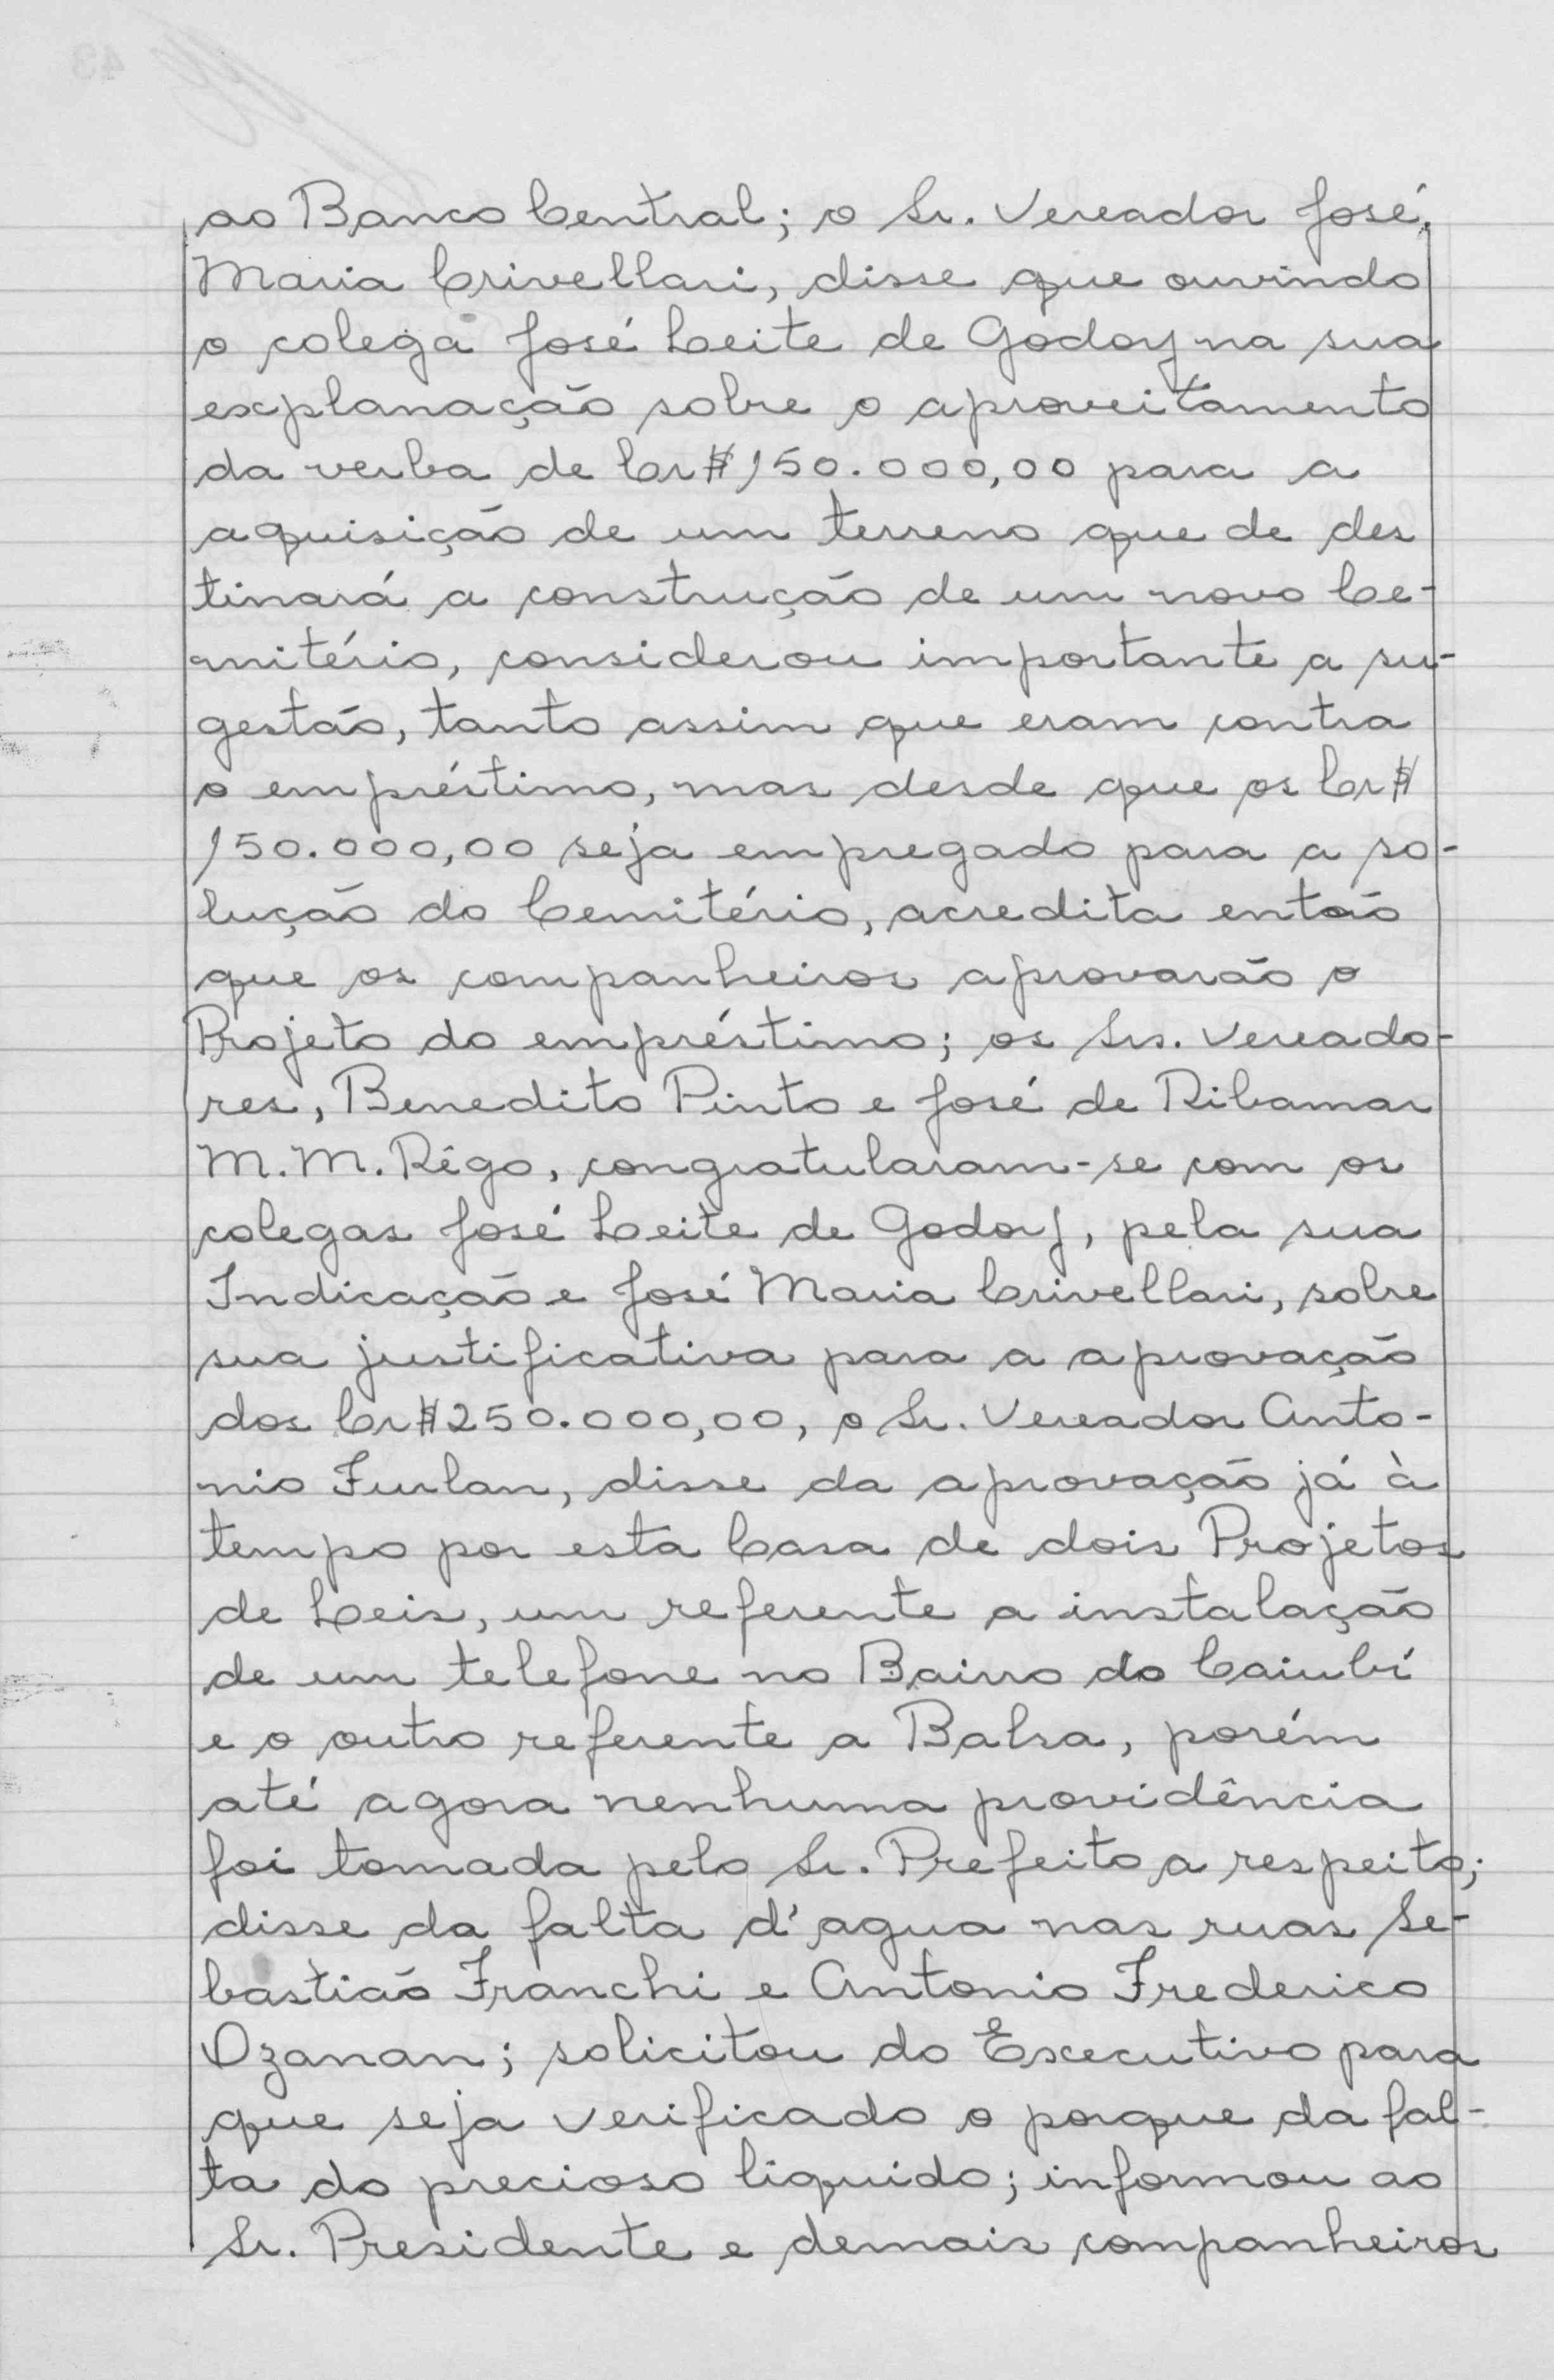 ao Banco Central; o Sr. Vereador José
Maria Crivellari, disse que ouvindo
o colega José Leite de Godoy na sua
explanação sobre o aproveitamento
da verba de Cr$150.000,00 para a
aquisição de um terreno que de des
tinará a construção de um novo Ce-
mitério, considerou importante a su-
gestão, tanto assim que eram contra
o empréstimo, mas desde que os Cr$
150.000,00 seja empregado para a so-
lução do Cemitério, acredita então
que os companheiros aprovarão o
Projeto do empréstimo; os Srs. Vereado-
res, Benedito Pinto e José de Ribamar
M.M. Rêgo, congratularam-se com os
colegas José Leite de Godoy, pela sua
Indicação e José Maria Crivellari, sobre
sua justificativa para a aprovação
dos Cr$250.000,00, o Sr. Vereador Anto-
nio Furlan, disse da aprovação já à
tempo por esta Casa de dois Projetos
de Leis, um referente a instalação
de um telefone no Bairro do Caiubí
e o outro referente a Balsa, porém
até agora nenhuma providência
foi tomada pelo Sr. Prefeito a respeito;
disse da falta d'agua nas ruas Se-
bastião Franchi e Antonio Frederico
Ozanan; solicitou do Executivo para
que seja verificado o porque da fal-
ta do precioso liquido; informou ao
Sr. Presidente e demais companheiros